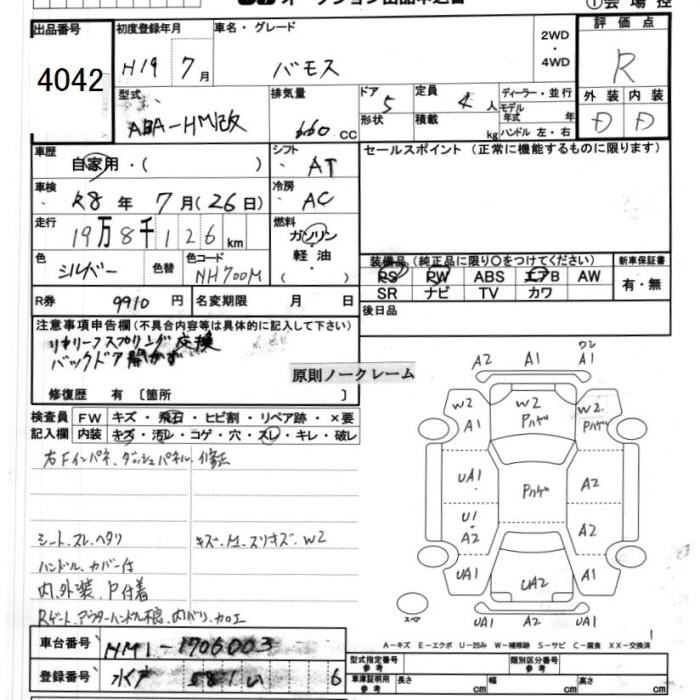 オークション出品申込書
①会場控
出品番号 4042
初度登録年月 H19 7月
車名・グレード バモス
2WD・4WD
評価点 R
外装 D 内装 D
型式 ABA-HM改
排気量 660 cc
ドア 5 形状
定員 4 人 積載 kg
ディーラー・並行
モデル年式 年式
ハンドル 左・右
車歴 自家用・( )
シフト AT
セールスポイント（正常に機能するものに限ります）
車検 R8 年 7月(26日)
冷房 AC
走行 19万8千126 km
燃料 ガソリン・軽油・( )
色 シルバー 色替 色コード NH700M
装備品（純正品に限り○をつけてください）
新車保証書 有・無
PS PW ABS エアB AW
SR ナビ TV カワ
R券 9910 円 名変期限 月 日
後日品
注意事項申告欄（不具合内容等は具体的に記入して下さい）
リヤリーフスプリング交換
バックドア開かず
原則ノークレーム
修復歴 有 〔箇所
検査員記入欄
FW キズ・飛石・ヒビ割・リペア跡・×要
内装 キズ・汚レ・コゲ・穴・スレ・キレ・破レ
右Fインパネ、ダッシュパネル、修正
シート、スレ、ヘタリ
キズ・凹、スリキズ、W2
ハンドル、カバー付
内、外装、P付着
Rゲート、アウターハンドル不良、内バリ、カロエ
A2 A1 ワレ A1
W2 A1 W2 Pハゲ W2 Pハゲ
UA1 Pハゲ A2
U1 A2 A2
UA1 UA2 A1
スペア UA1 A2 UA1
A－キズ E－エクボ U－凹み W－補修跡 S－サビ C－腐食 XX－交換済
車台番号 HM1-1706003
登録番号 6
型式指定番号 参考
類別区分番号 参考
車庫証明用 参考 長さ cm 幅 cm 高さ cm